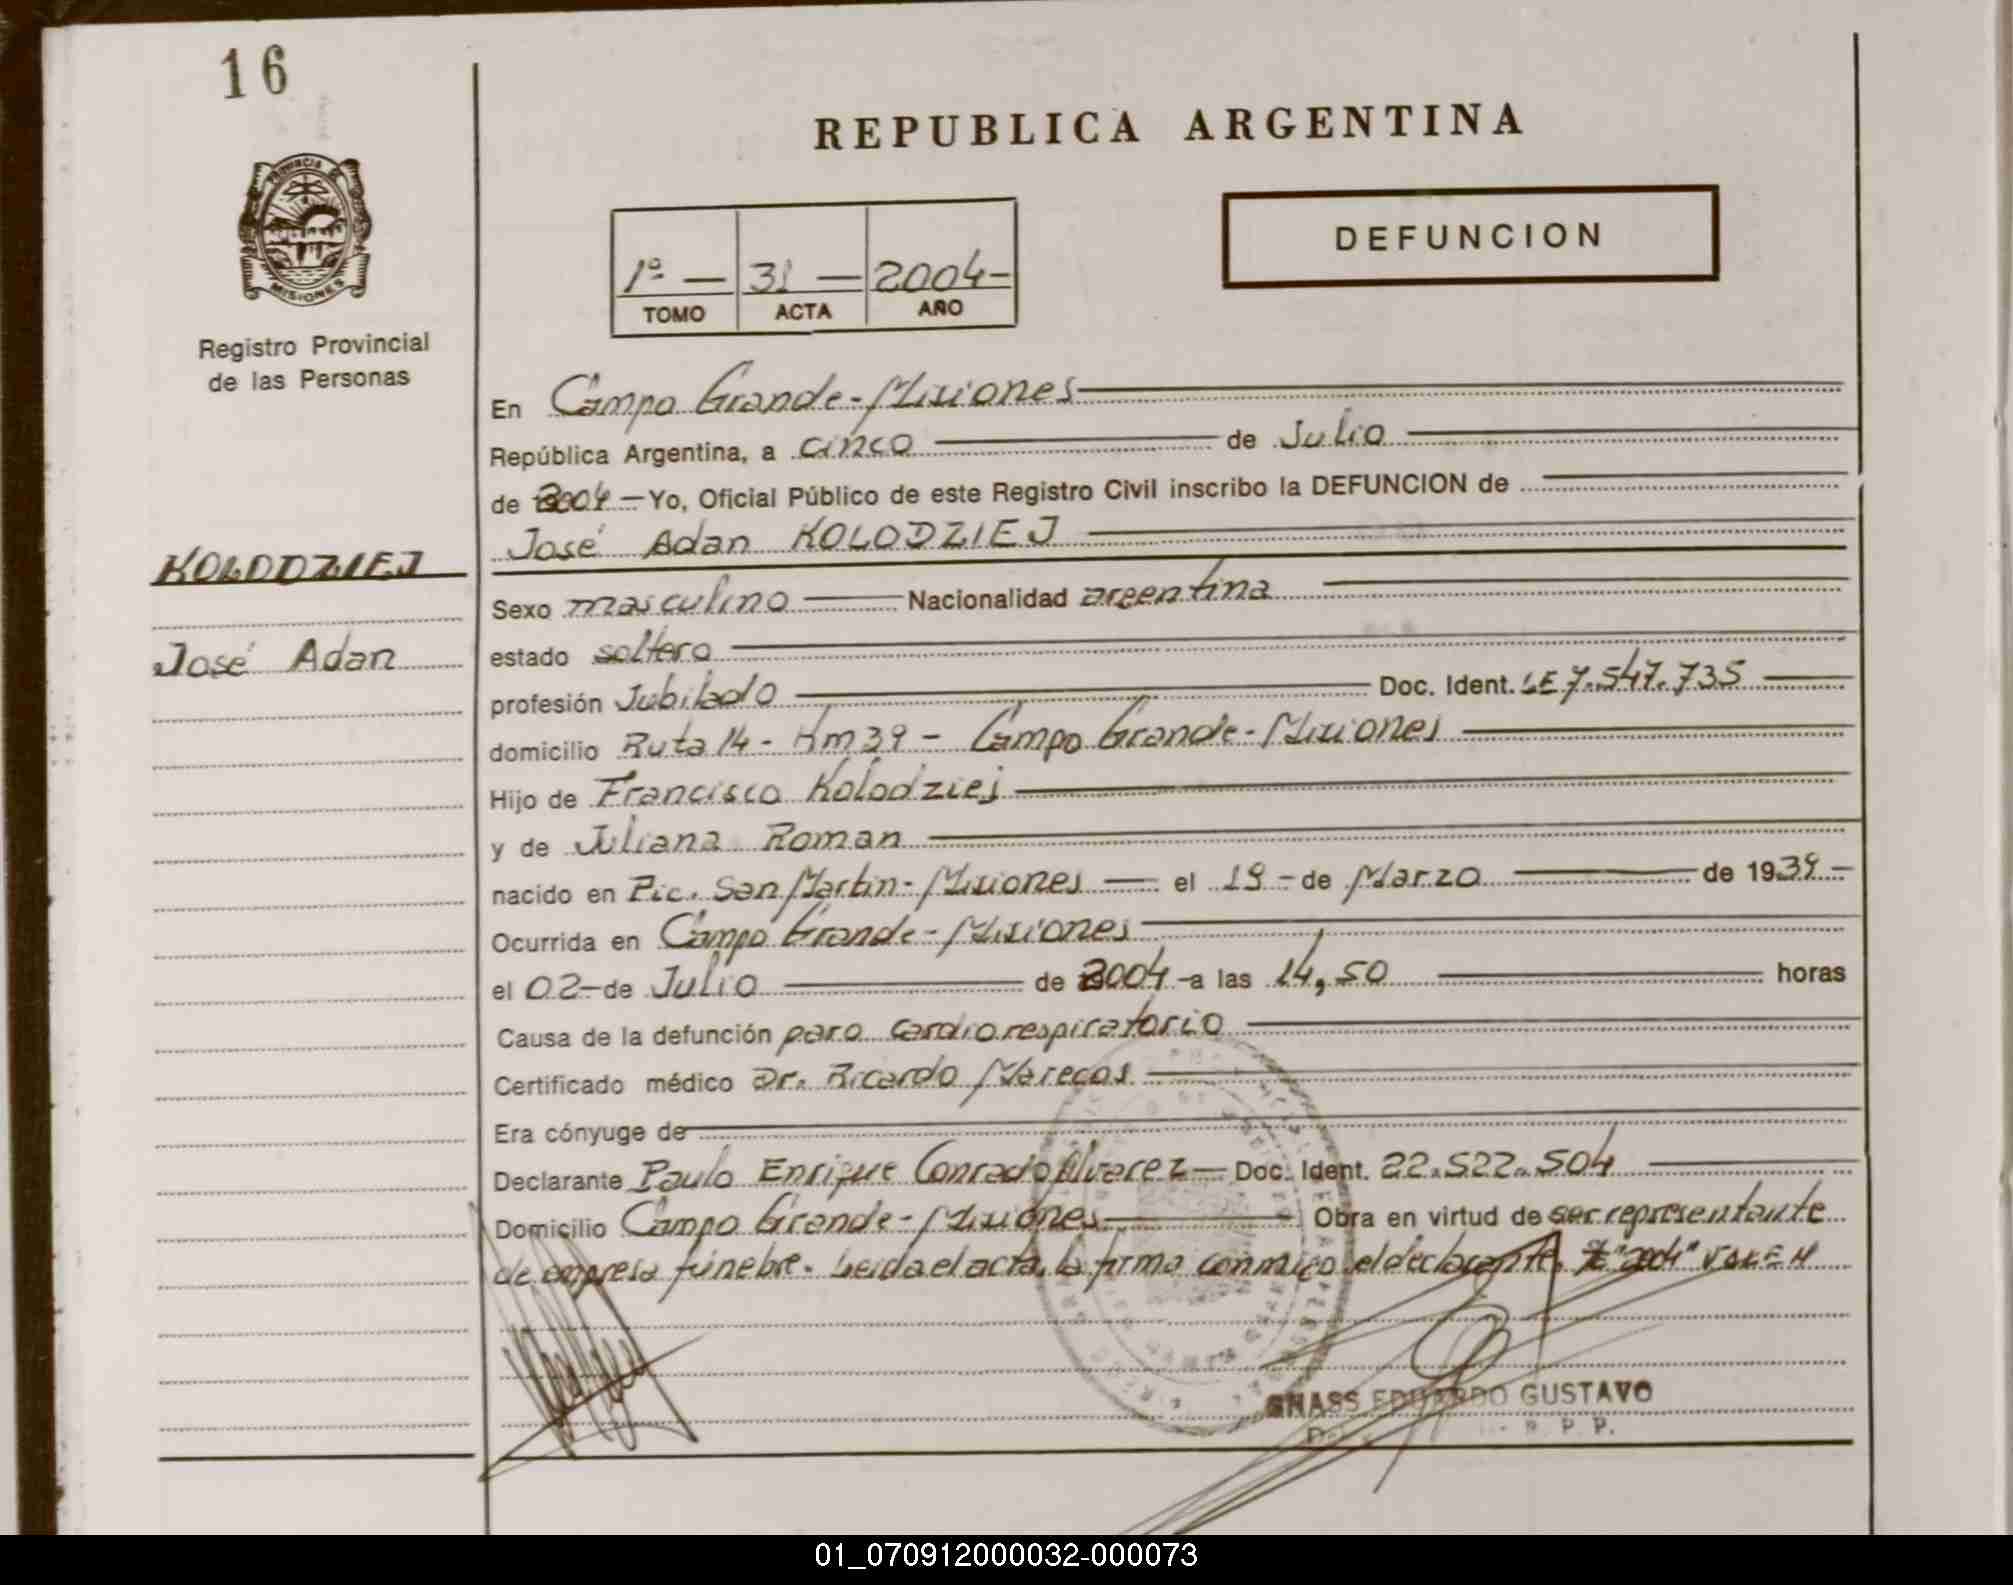 16
PROVINCIA DE
MISIONES
Registro Provincial
de las Personas
REPUBLICA ARGENTINA
DEFUNCION
1º — 31 — 2004-
TOMO ACTA AÑO
En Campo Grande - Misiones
República Argentina, a cinco de Julio
de 2004 — Yo, Oficial Público de este Registro Civil inscribo la DEFUNCION de
KOLODZIEJ
José Adan
José Adan KOLODZIEJ
Sexo masculino Nacionalidad argentina
estado soltero
profesión Jubilado Doc. Ident. LE 7.547.735
domicilio Ruta 14 - Km 39 - Campo Grande - Misiones
Hijo de Francisco Kolodziej
y de Juliana Roman
nacido en Pic. San Martin - Misiones — el 19 - de Marzo de 1939 -
Ocurrida en Campo Grande - Misiones
el 02 - de Julio de 2004 - a las 14,50 horas
Causa de la defunción paro cardiorespiratorio
Certificado médico Dr. Ricardo Marecos
Era cónyuge de
Declarante Paulo Enrique Conrado Alvarez — Doc. Ident. 22.522.504
Domicilio Campo Grande - Misiones Obra en virtud de ser representante
de empresa fúnebre. Leida el acta, la firma conmigo el declarante. "2004" VALEN
GNASS EDUARDO GUSTAVO
R. P. P.
01_070912000032-000073